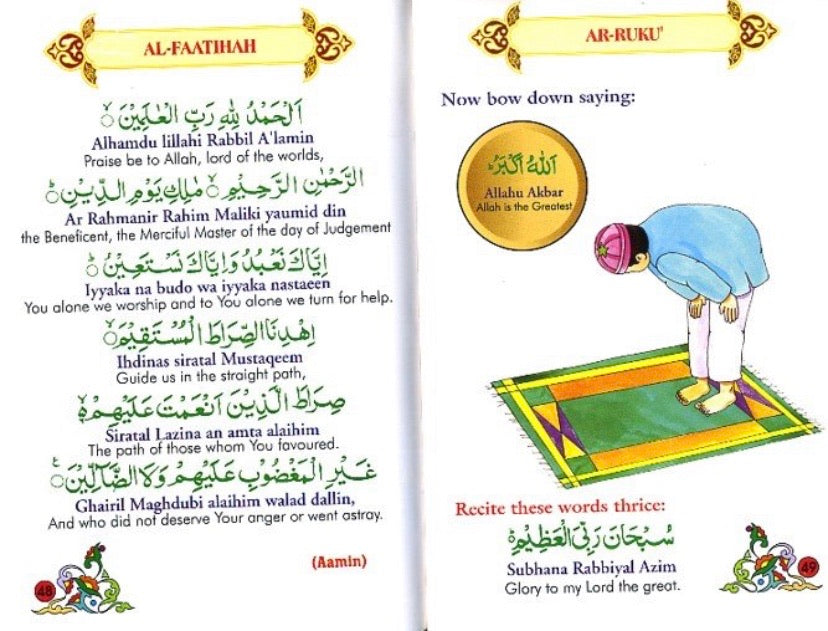 AL-FAATIHAH
اَلْحَمْدُ لِلّٰهِ رَبِّ الْعٰلَمِيْنَ
Alhamdu lillahi Rabbil A'lamin
Praise be to Allah, lord of the worlds,
الرَّحْمٰنِ الرَّحِيْمِ مٰلِكِ يَوْمِ الدِّيْنِ
Ar Rahmanir Rahim Maliki yaumid din
the Beneficent, the Merciful Master of the day of Judgement
اِيَّاكَ نَعْبُدُ وَاِيَّاكَ نَسْتَعِيْنُ
Iyyaka na budo wa iyyaka nastaeen
You alone we worship and to You alone we turn for help.
اِهْدِنَا الصِّرَاطَ الْمُسْتَقِيْمَ
Ihdinas siratal Mustaqeem
Guide us in the straight path,
صِرَاطَ الَّذِيْنَ اَنْعَمْتَ عَلَيْهِمْ
Siratal Lazina an amta alaihim
The path of those whom You favoured.
غَيْرِ الْمَغْضُوْبِ عَلَيْهِمْ وَلَا الضَّآلِّيْنَ
Ghairil Maghdubi alaihim walad dallin,
And who did not deserve Your anger or went astray.
(Aamin)
48
AR-RUKU'
Now bow down saying:
اَللّٰهُ اَكْبَرُ
Allahu Akbar
Allah is the Greatest
Recite these words thrice:
سُبْحَانَ رَبِّىَ الْعَظِيْمِ
Subhana Rabbiyal Azim
Glory to my Lord the great.
49